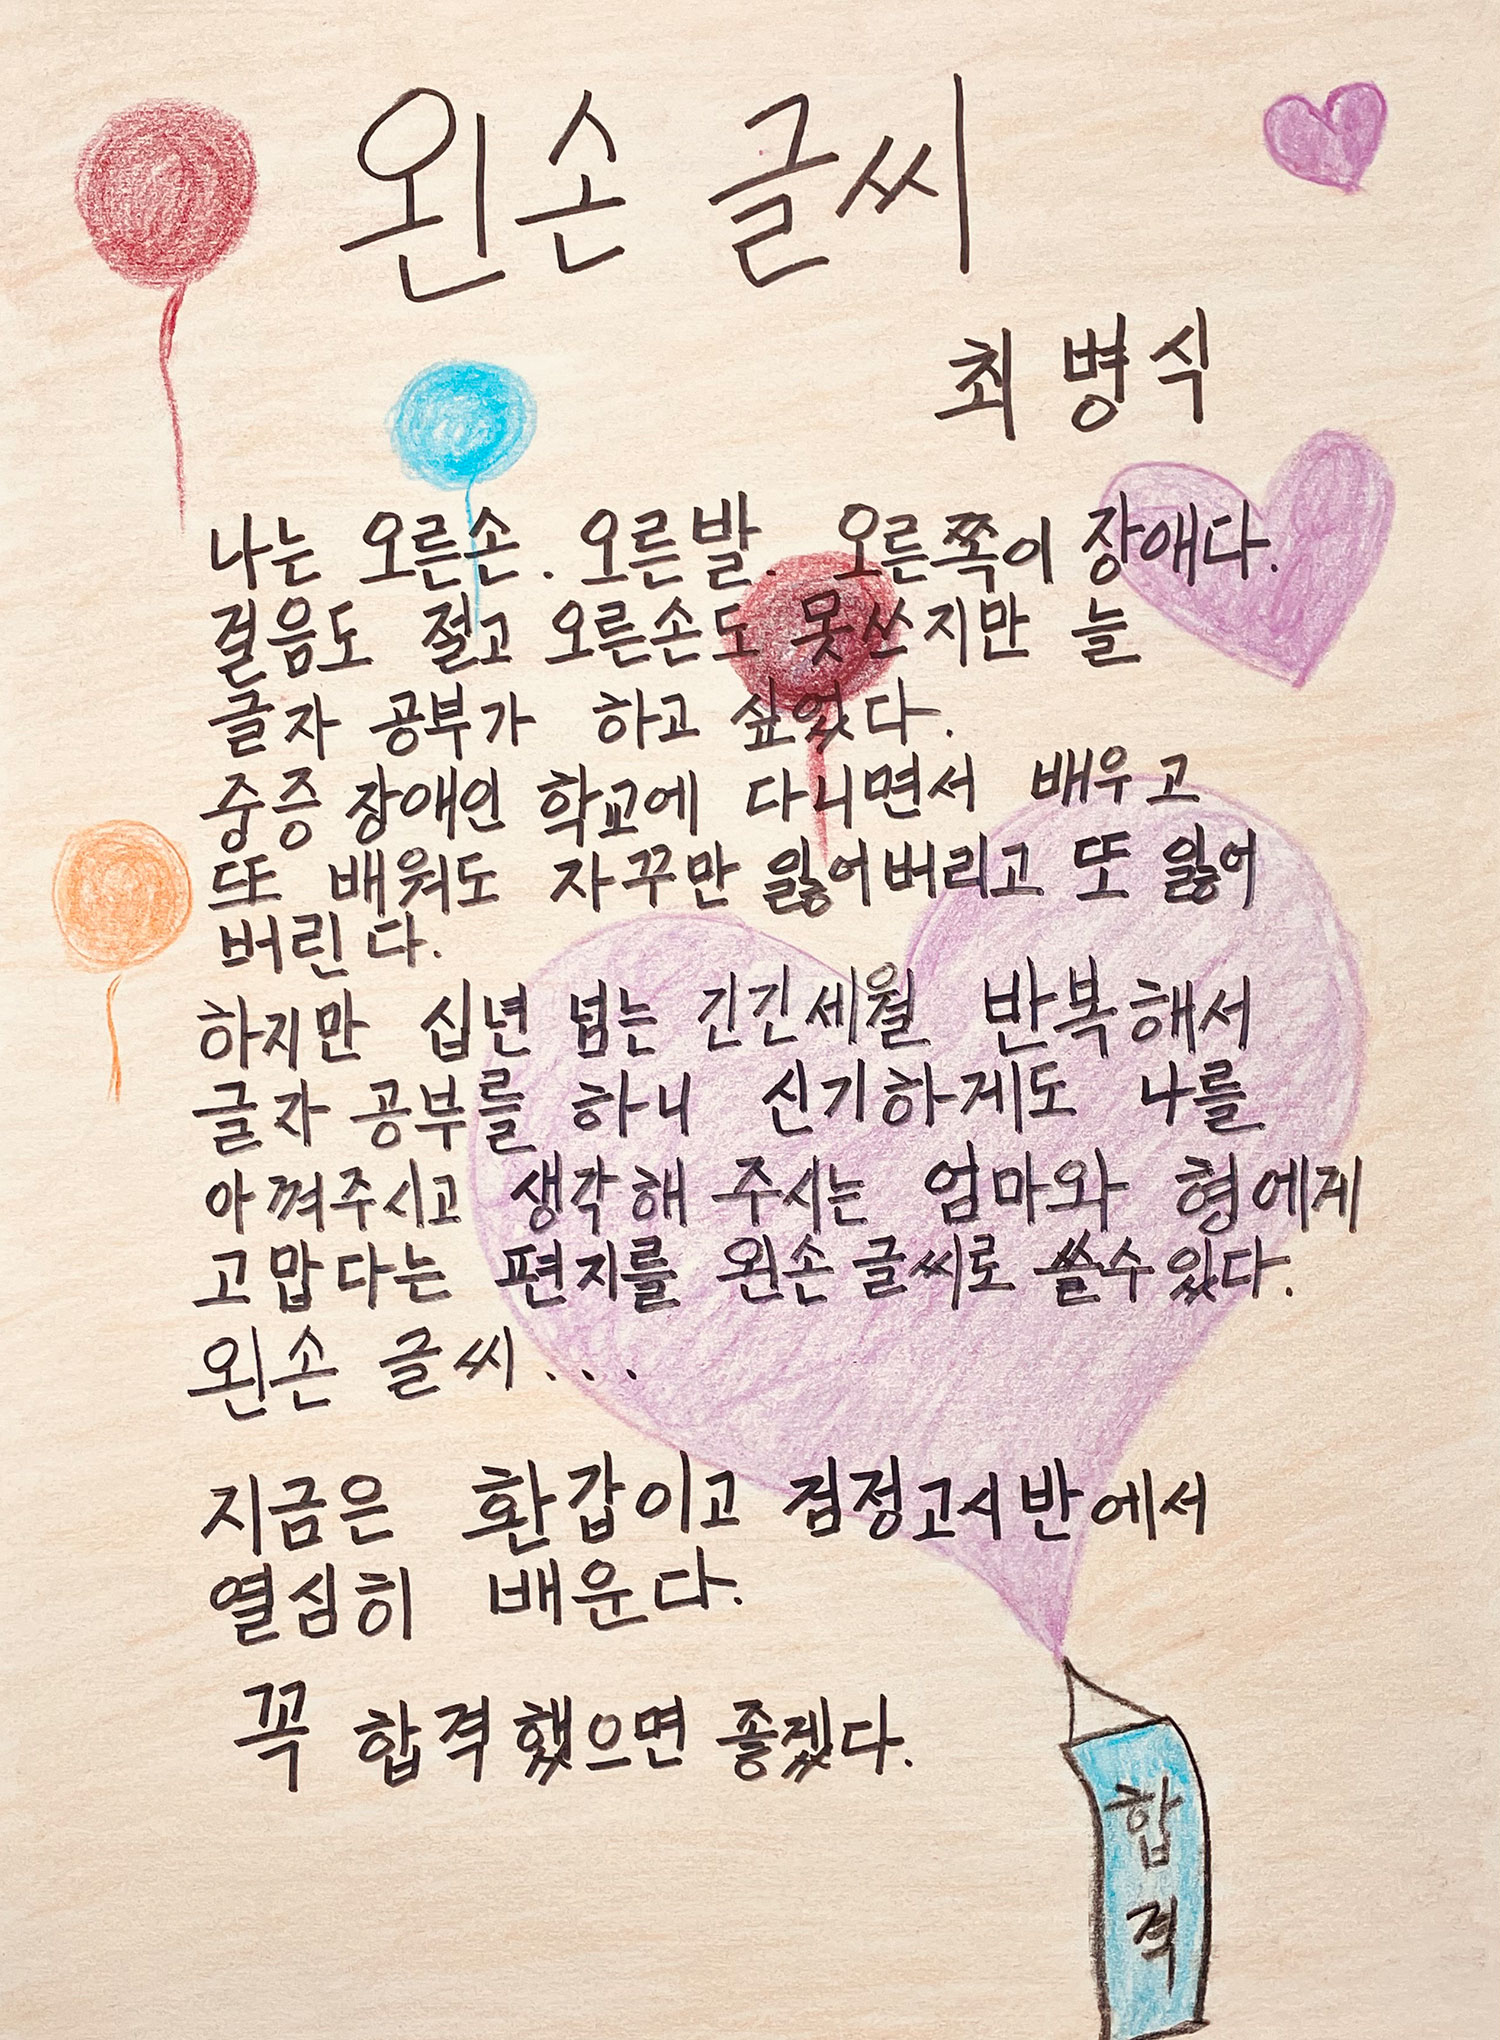 왼손 글씨
최병식
나는 오른손. 오른발. 오른쪽이 장애다.
걸음도 절고 오른손도 못쓰지만 늘
글자 공부가 하고 싶었다.
중증 장애인 학교에 다니면서 배우고
또 배워도 자꾸만 잃어버리고 또 잃어
버린다.
하지만 십년 넘는 긴긴세월 반복해서
글자 공부를 하니 신기하게도 나를
아껴주시고 생각해 주시는 엄마와 형에게
고맙다는 편지를 왼손 글씨로 쓸수 있다.
왼손 글씨...
지금은 환갑이고 검정고시반에서
열심히 배운다.
꼭 합격했으면 좋겠다.
합
격